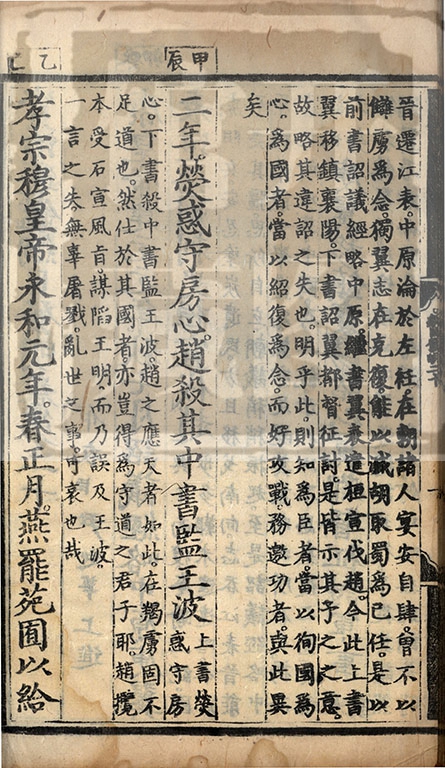 晉遷江表。中原淪於左衽。在朝諸人宴安自肆。曾不以
讎虜爲念。獨翼志在克復。能以滅胡取蜀爲己任。是以
前書詔議經略中原。繼書翼表遣桓宣伐趙。今此上書
翼移鎮襄陽。下書詔翼都督征討。是皆示其予之之意。
故略其違詔之失也。明乎此。則知爲臣者。當以徇國爲
心。爲國者。當以紹復爲念。而好攻戰。務邀功者。與此異
矣
甲辰
二年。熒惑守房心。趙殺其中書監王波
上書熒
惑守房
心。下書殺中書監王波。趙之應天者如此。在羯虜固不
足道也。然仕於其國者。亦豈得爲守道之君子耶。趙攬
本受石宣風旨。謀陷王明。而乃誤及王波。
一言之失。無辜屠戮。亂世之事。可哀也哉
乙巳
孝宗穆皇帝永和元年。春正月。燕罷苑囿以給